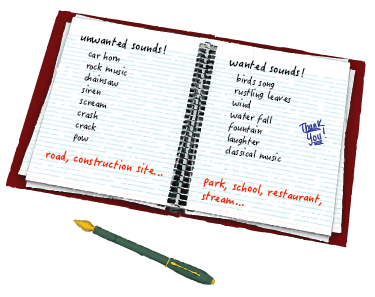 unwanted sounds!
car horn
rock music
chainsaw
siren
scream
crash
crack
pow
road, construction site...
wanted sounds!
birds song
rustling leaves
wind
water fall
fountain
laughter
classical music
Thank
you!
park, school, restaurant,
stream...